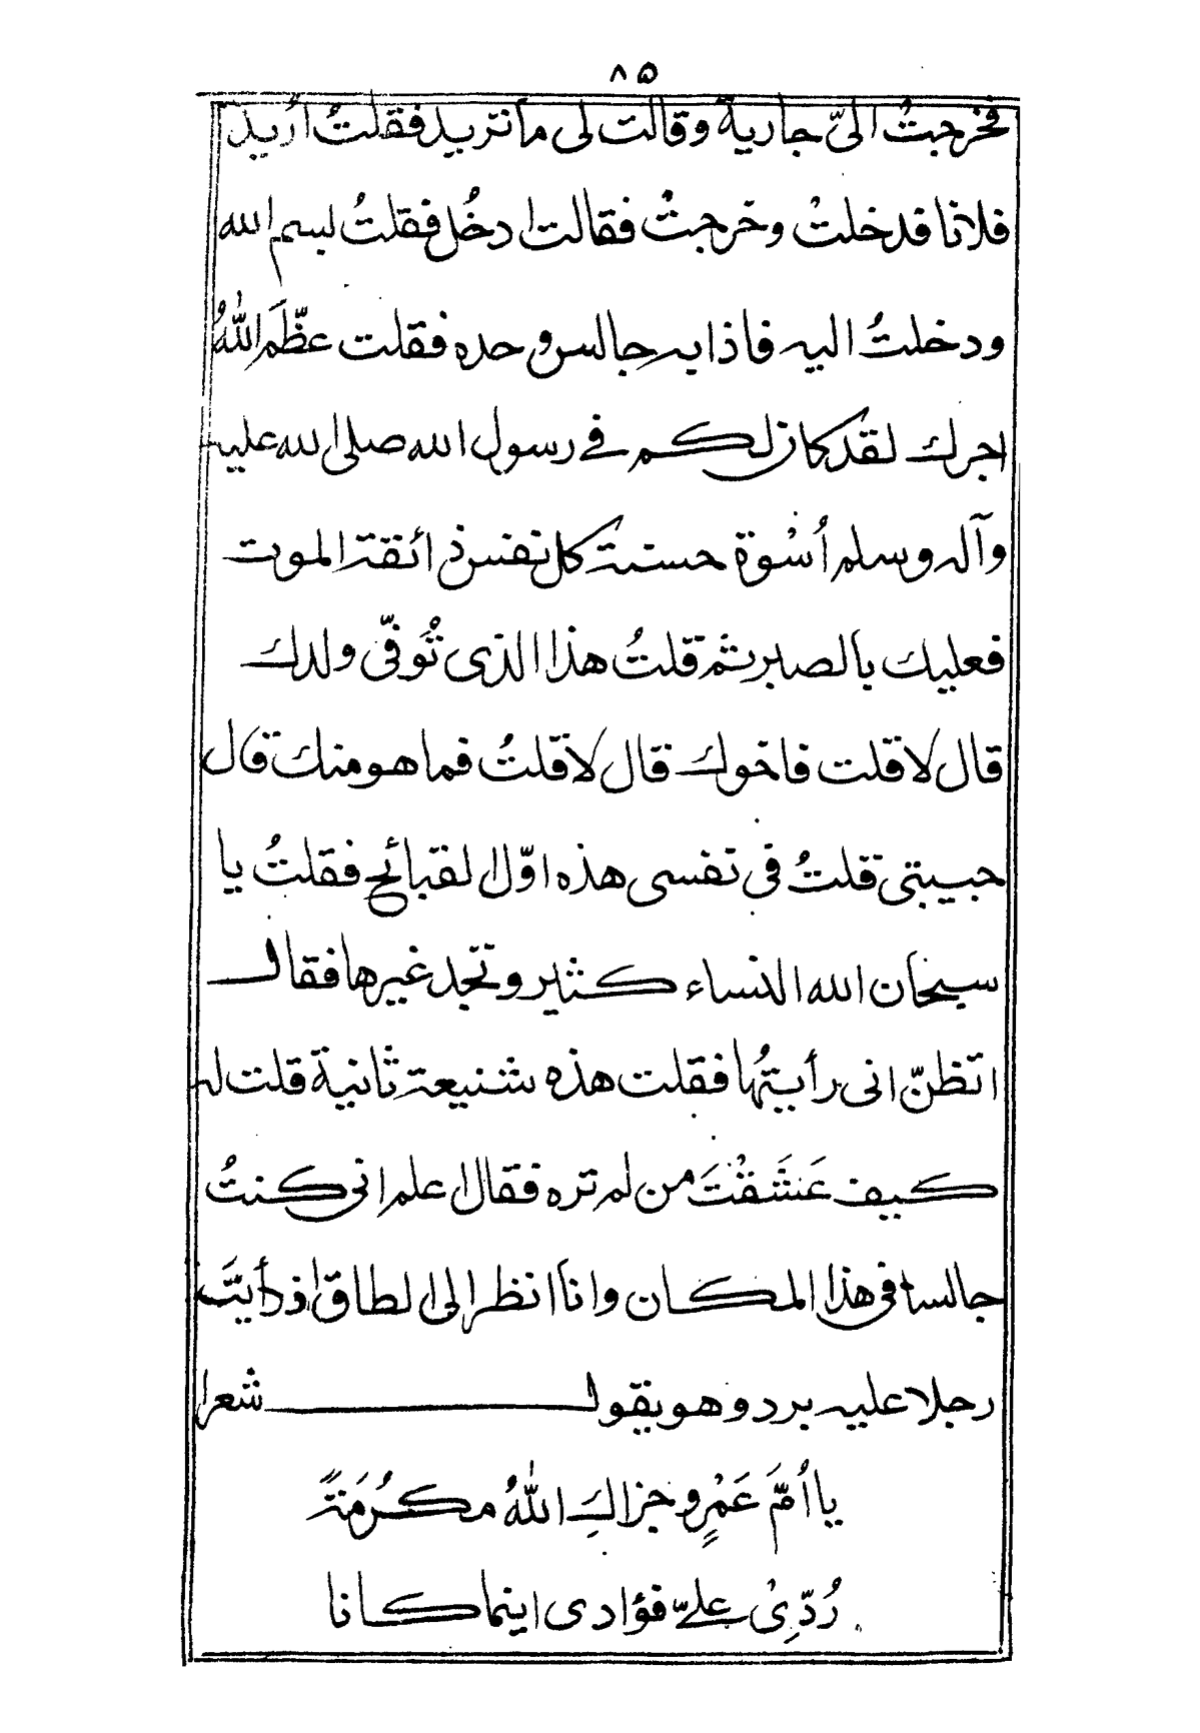 ۸۵
فخرجتُ الىّ جارية وقالت لى ما تريد فقلتُ اُريد
فلانا فدخلتْ وخرجتْ فقالت ادخُل فقلتُ بسم الله
ودخلتُ اليه فاذا به جالس وحده فقلت عظّمَ اللهُ
اجرك لقد كان لكم في رسول الله صلى الله عليه
وآله وسلم اُسْوة حسنة كل نفس ذائقة الموت
فعليك بالصبر ثم قلتُ هذا الذى تُوفّى ولدك
قال لا قلت فاخوك قال لا قلتُ فما هو منك قال
حبيبتى قلتُ فى نفسى هذه اوّل القبائح فقلتُ يا
سبحان الله النساء كثير وتجد غيرها فقال
اتظنّ انى رأيتُها فقلت هذه شنيعة ثانية قلت له
كيف عَشَقْتَ من لم تره فقال اعلم انى كنتُ
جالسا فى هذا المكان وانا انظر الى الطاق اذ رأيتَ
رجلا عليه برد وهو يقول شعرا
يا اُمَّ عَمْرٍو جزاكِ اللهُ مكرُمَةً
رُدِّىْ علىّ فؤادى اينما كانا